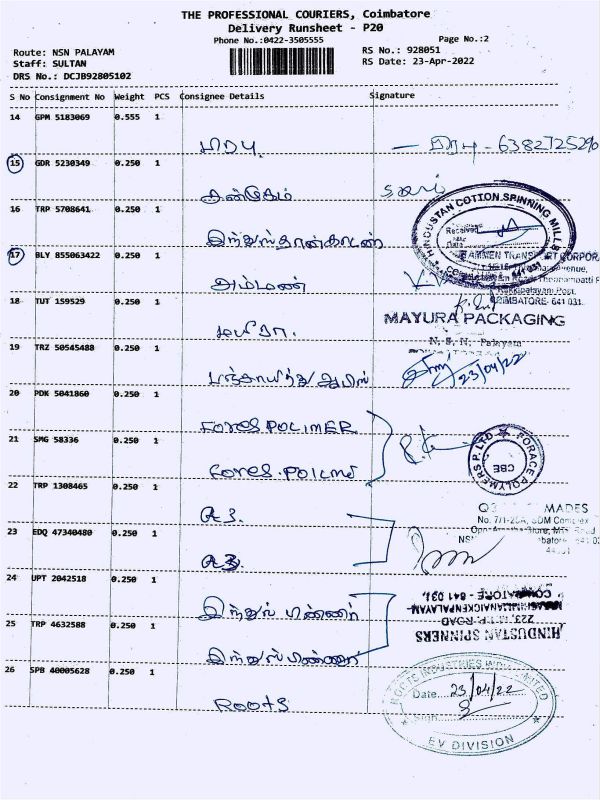 THE PROFESSIONAL COURIERS, Coimbatore
Delivery Runsheet - P20
Phone No.:0422-3505555
Page No.:2
Route: NSN PALAYAM
RS No.: 928051
Staff: SULTAN
RS Date: 23-Apr-2022
DRS No.: DCJB92805102
S No Consignment No Weight PCS Consignee Details Signature
14 GPM 5183069 0.555 1
15 GDR 5230349 0.250 1
16 TRP 5708641 0.250 1 இந்துஸ்தான்காடன்
HINDUSTAN COTTON SPINNING MILLS
Received
Date
17 BLY 855063422 0.250 1 அம்மன்
COIMBATORE- 641 031.
18 TUT 159529 0.250 1 மயூரா.
MAYURA PACKAGING
N. S. N. Palayam
19 TRZ 50545488 0.250 1 பஞ்சாயத்து ஆபிஸ்
23/04/22
20 PDK 5041860 0.250 1 FORES POLIMER
21 SMG 58336 0.250 1 Fores. Polime
FORACE POLYMERS P. LTD
CBE
22 TRP 1308465 0.250 1
MADES
No. 7/1-20A, SDM Complex
23 EDQ 47340480 0.250 1
24 UPT 2042518 0.250 1
HINDUSTAN SPINNERS
223, M.T.P. ROAD
COIMBATORE - 641 031.
25 TRP 4632588 0.250 1
26 SPB 40005628 0.250 1 Roots
ROOTS INDUSTRIES INDIA LIMITED
Date 23/04/22
Sign
EV DIVISION